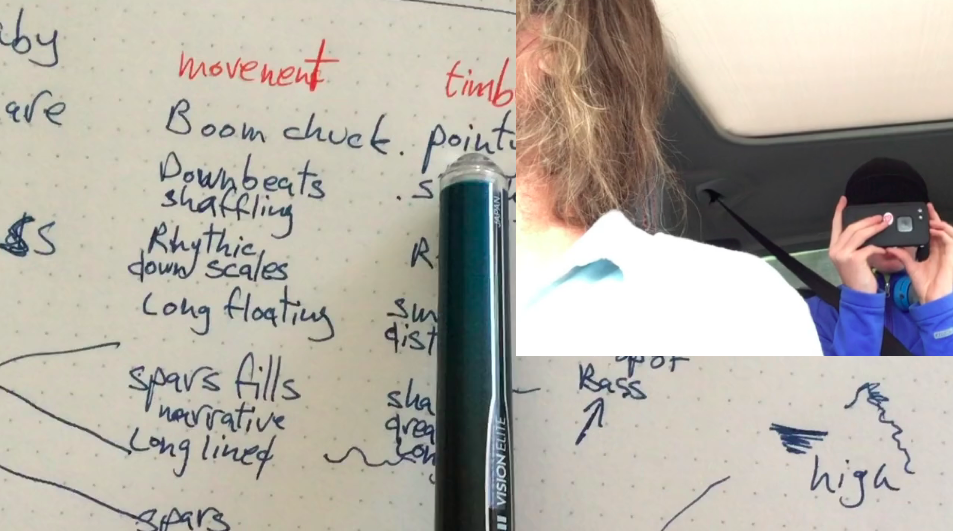 by
movement
timb
are
Boom chuck.
pointy
Downbeats
shaffling
Rhythic
down scales
Long floating
dist
spars fills
narrative
Long lined
spars
JAPAN
VISION ELITE
up of
Bass
high